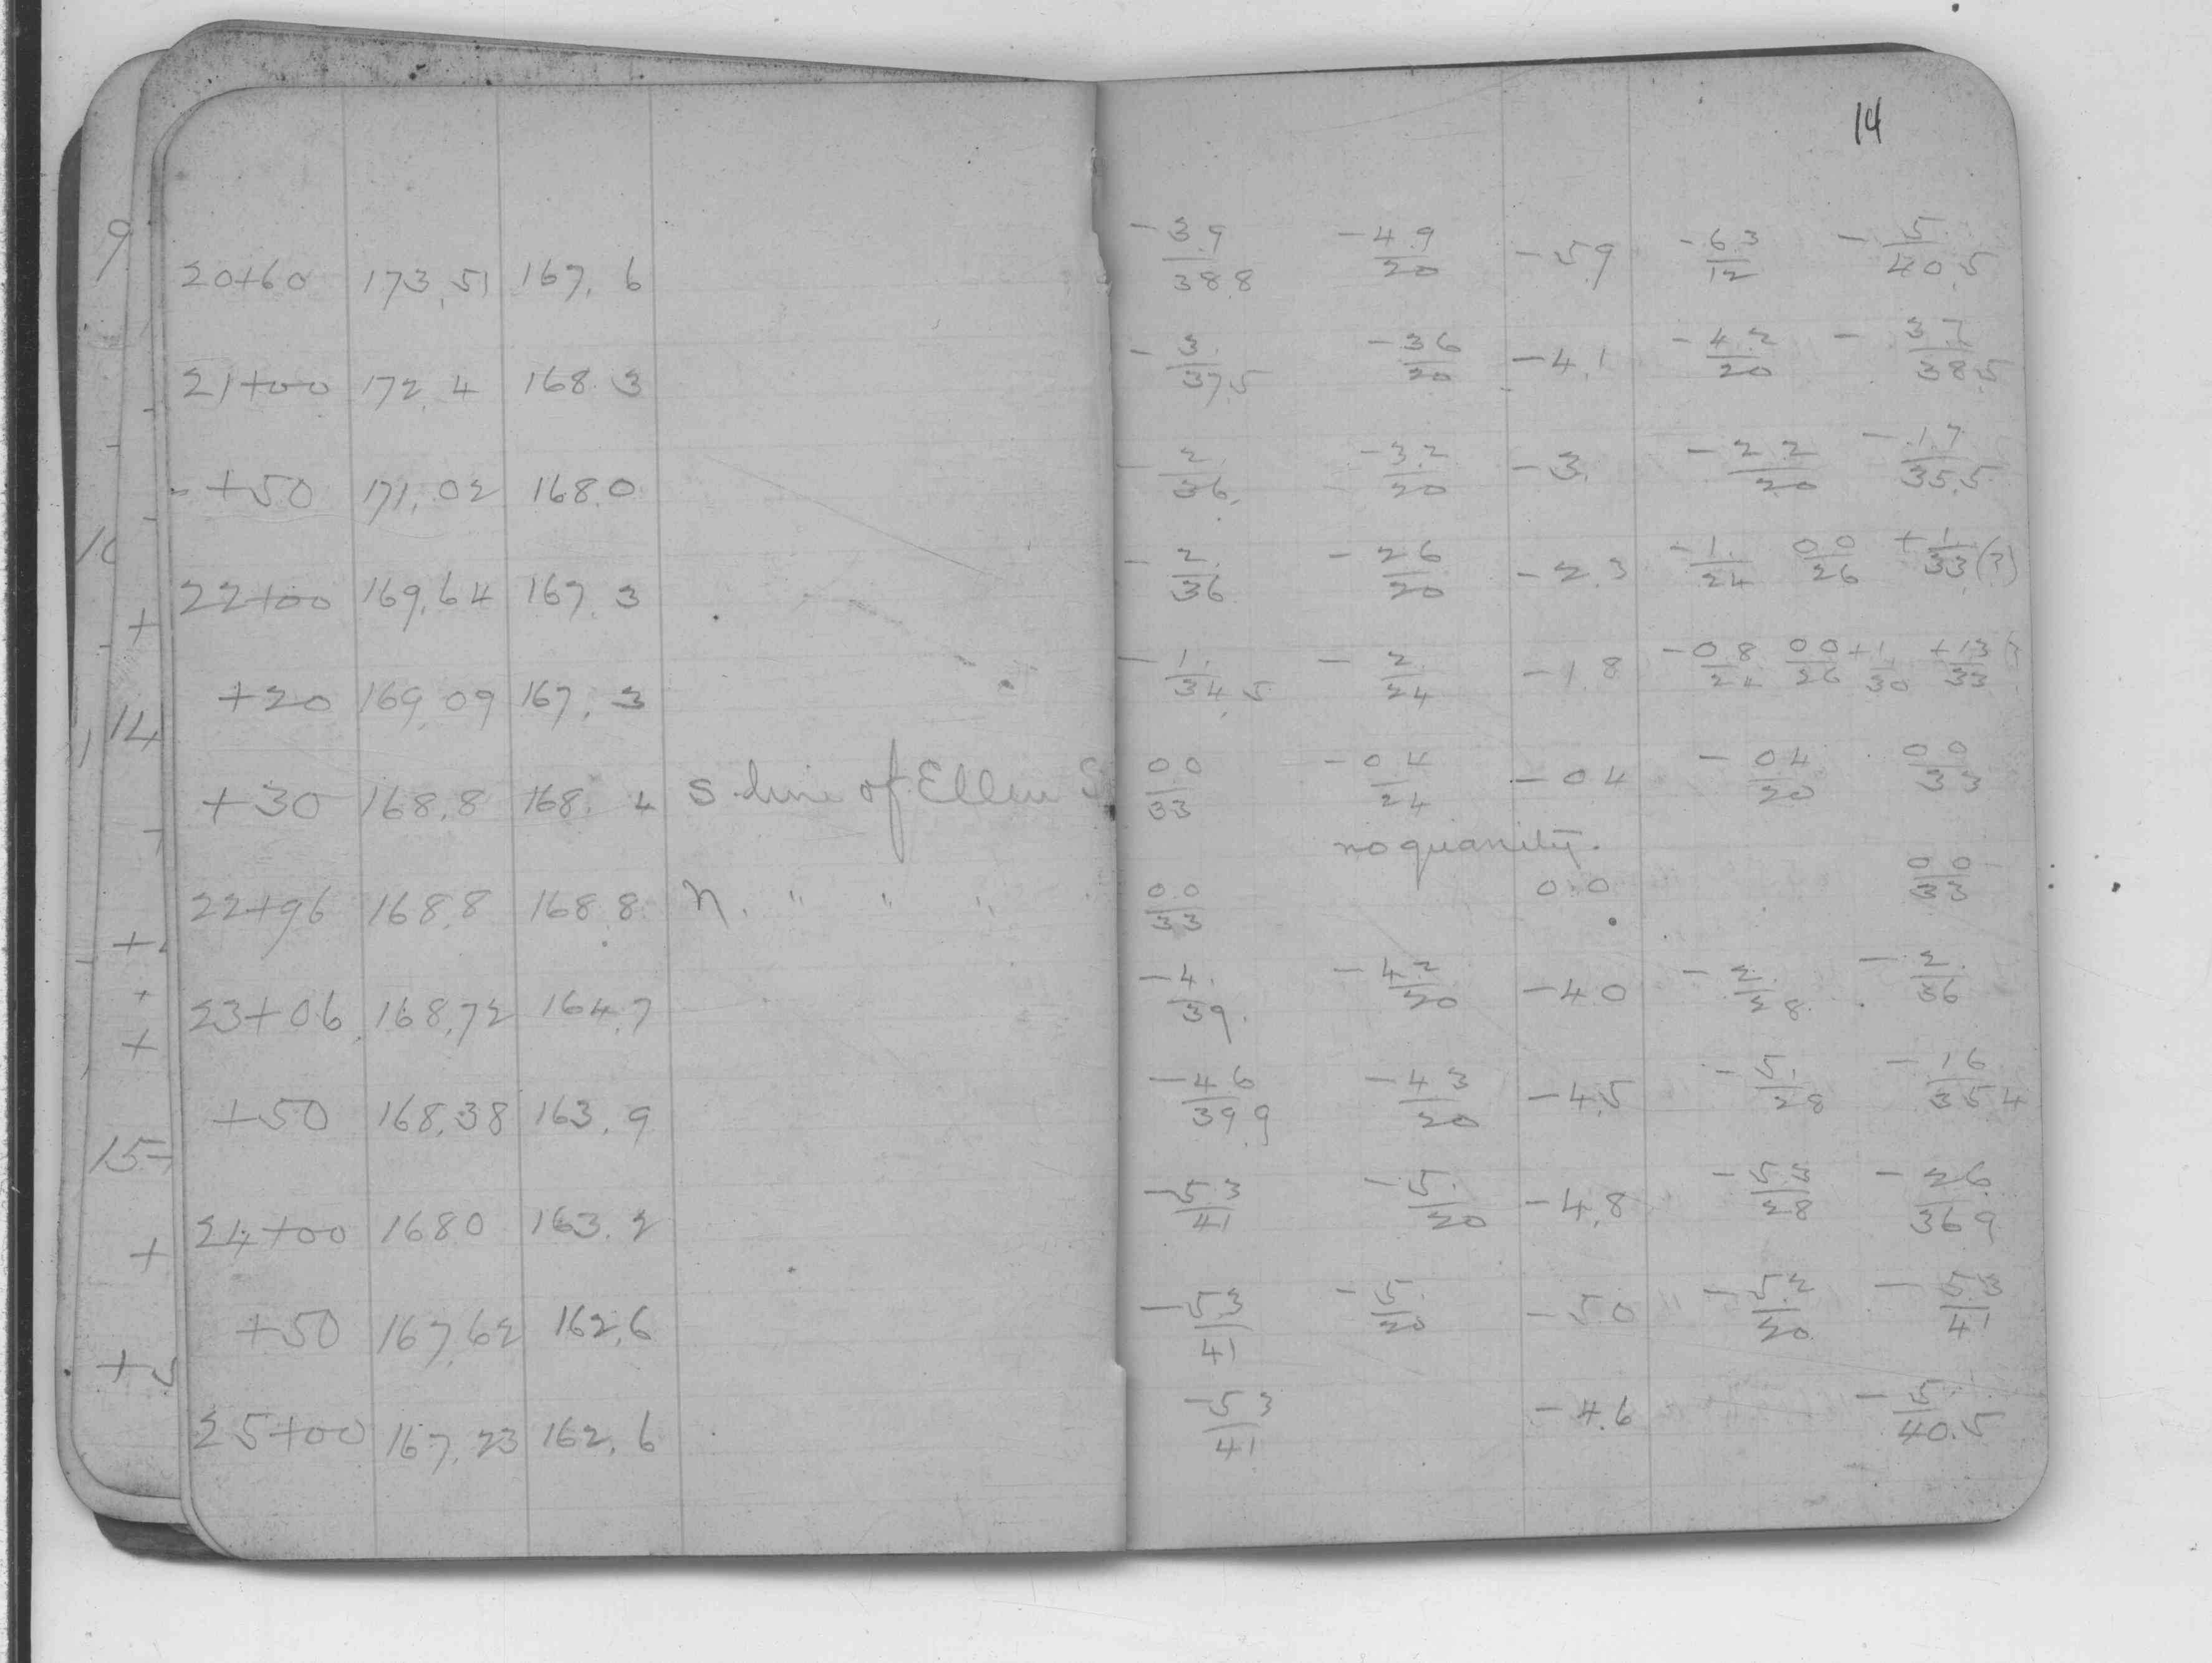 14
20+60 173.51 167.6 -3.9/38.8 -4.9/20 -5.9 -6.3/12 -5./40.5
21+00 172.4 168.3 -3./37.5 -3.6/20 -4.1 -4.2/20 -3.7/38.5
+50 171.02 168.0 -2./36. -3.2/20 -3. -2.2/20 -1.7/35.5
22+00 169.64 167.3 -2./36 -2.6/20 -2.3 -1./24 0.0/26 +1/33(?)
+20 169.09 167.3 -1./34.5 -2./24 -1.8 -0.8/24 0.0/26 +1./30 +1.3/33
+30 168.8 168.4 S line of Ellen S 0.0/33 -0.4/24 -0.4 -0.4/20 0.0/33
no quanity.
22+96 168.8 168.8 N. " " " 0.0/33 0.0 0.0/33
23+06 168.72 164.7 -4./39. -4.2/20 -4.0 -2./28. -2./36
+50 168.38 163.9 -4.6/39.9 -4.3/20 -4.5 -5./28 -1.6/35.4
24+00 168.0 163.2 -5.3/41 -5./20 -4.8 -5.3/28 -2.6/36.9
+50 167.62 162.6 -5.3/41 -5./20 -5.0 -5.2/20 -5.3/41
25+00 167.23 162.6 -5.3/41 -4.6 -5./40.5